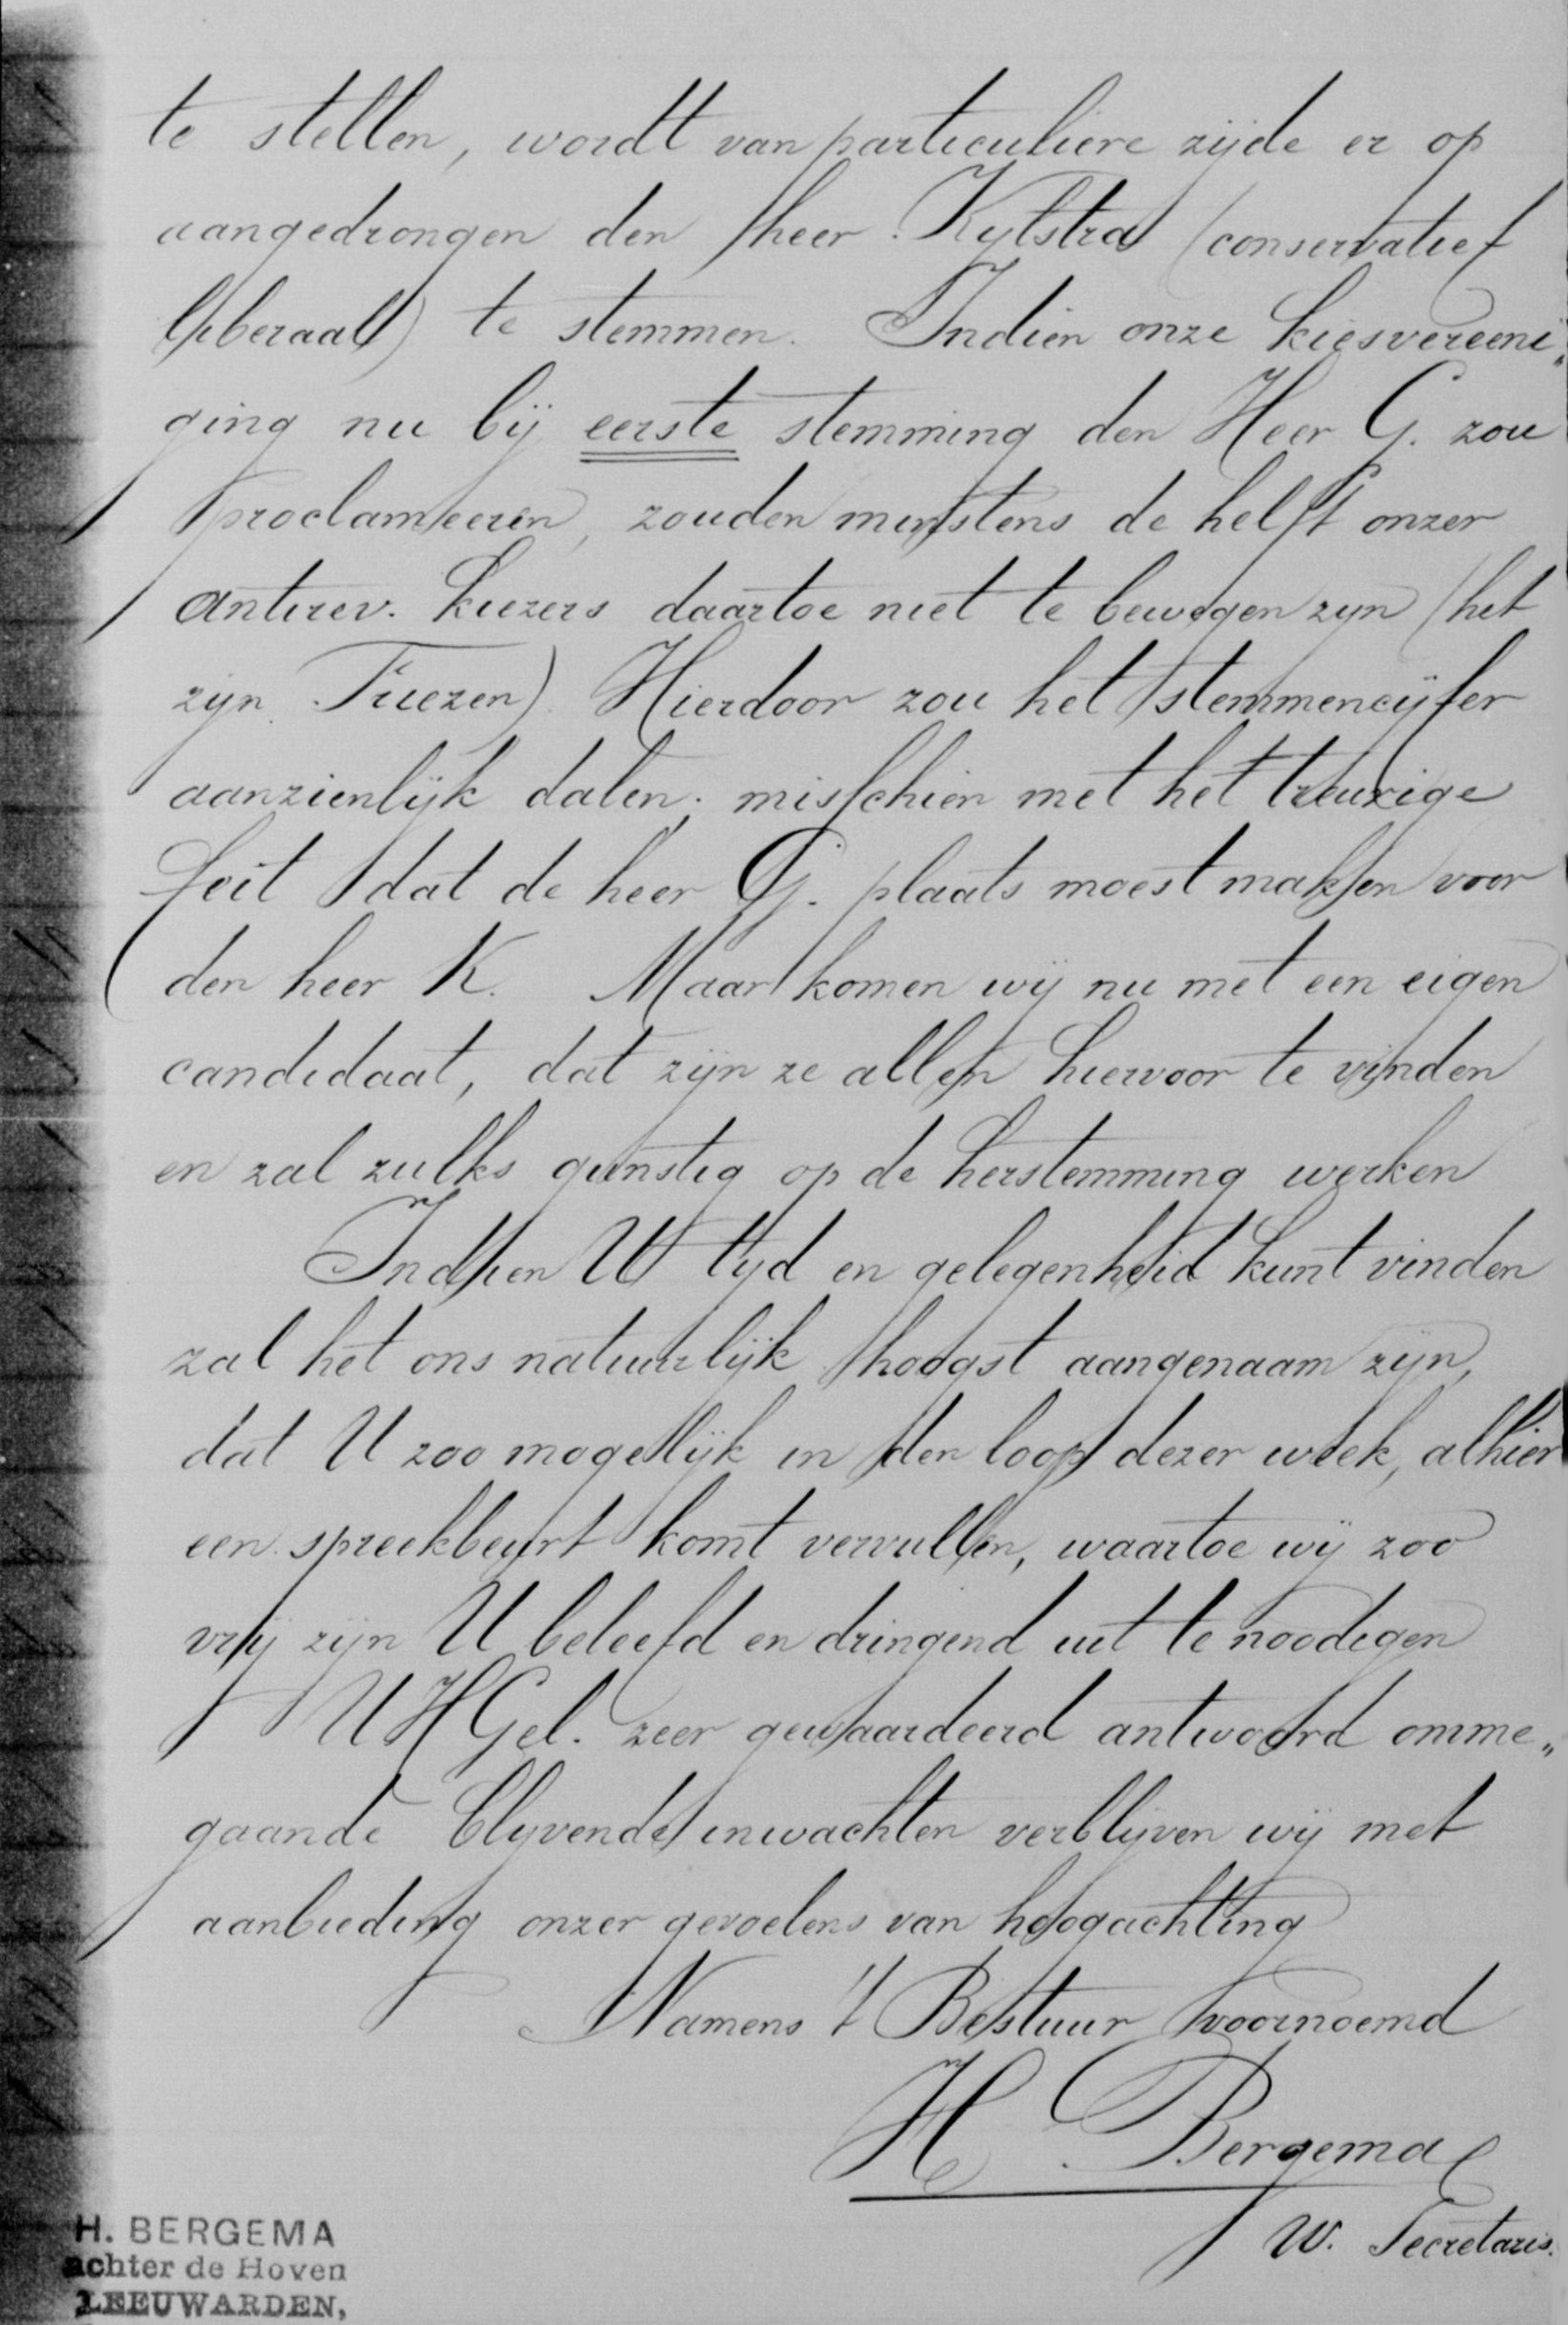 te stellen, wordt van particuliere zijde er op
aangedrongen den heer Kylstra (conservatief
liberaal) te stemmen. Indien onze kiesvereeni„
ging nu bij eerste stemming den Heer G. zou
proclameeren, zouden minstens de helft onzer
antirev. kiezers daartoe niet te bewegen zijn (het
zijn Friezen). Hierdoor zou het stemmencijfer
aanzienlijk dalen; misschien met het treurige
feit dat de heer G. plaats moest maken voor
den heer K. Maar komen wij nu met een eigen
candidaat, dat zijn ze allen hiervoor te vinden
en zal zulks gunstig op de herstemming werken
Indien U tijd en gelegenheid kunt vinden
zal het ons natuurlijk hoogst aangenaam zijn,
dat U zoo mogelijk in den loop dezer week, alhier
een spreekbeurt komt vervullen, waartoe wij zoo
vrij zijn U beleefd en dringend uit te noodigen
UHGel. zeer gewaardeerd antwoord omme„
gaande blijvende inwachten verblijven wij met
aanbieding onzer gevoelens van hoogachting
Namens 't Bestuur voornoemd
H Bergema
W. Secretaris.
H. BERGEMA
achter de Hoven
LEEUWARDEN,